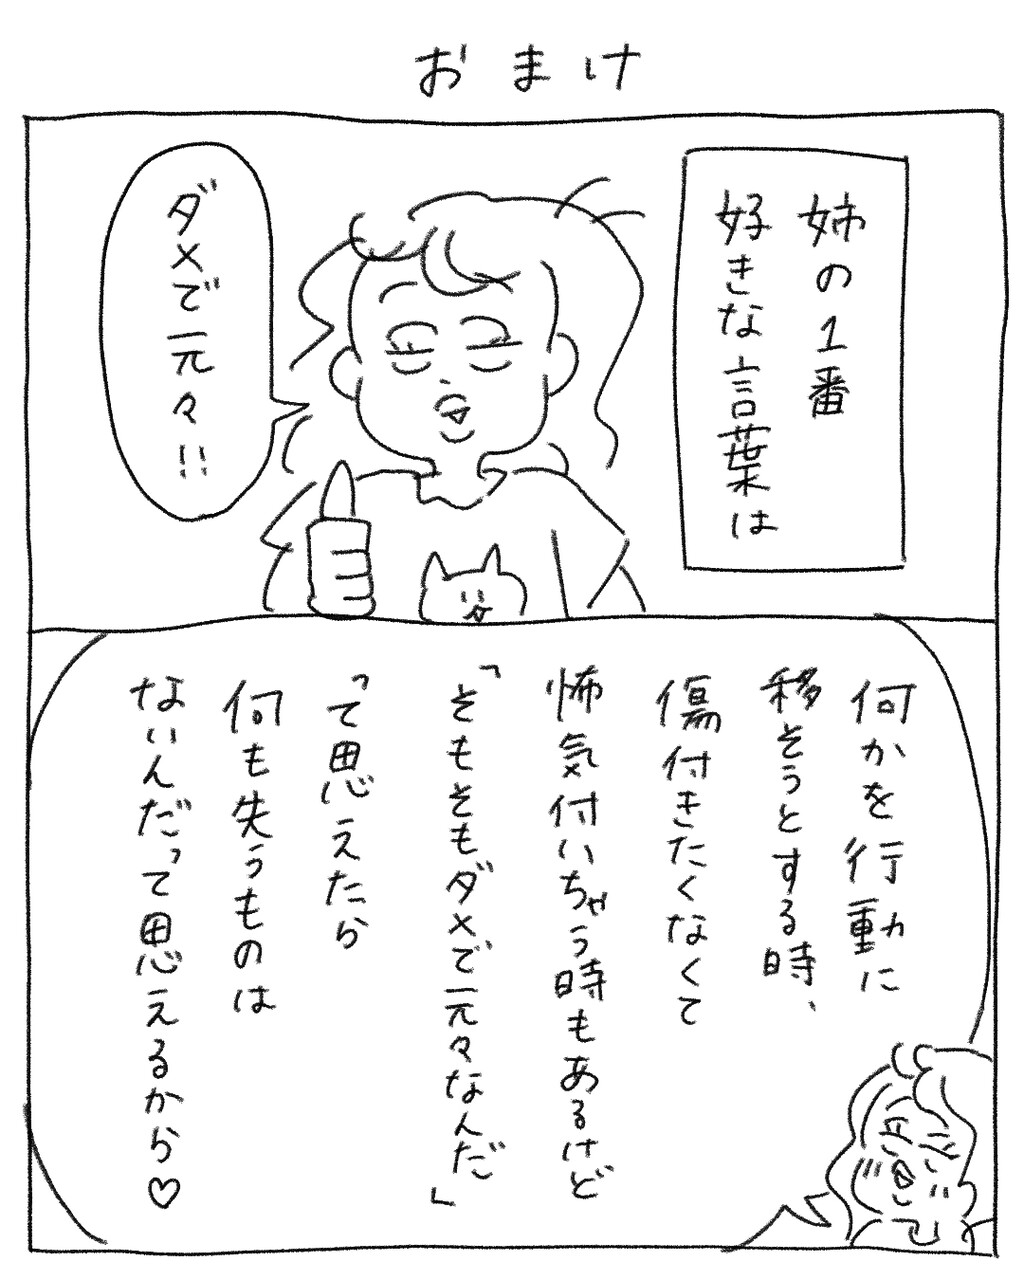 おまけ
姉の1番
好きな言葉は
ダメで元々!!
何かを行動に
移そうとする時、
傷付きたくなくて
怖気付いちゃう時もあるけど
「そもそもダメで元々なんだ」
って思えたら
何も失うものは
ないんだって思えるから♡